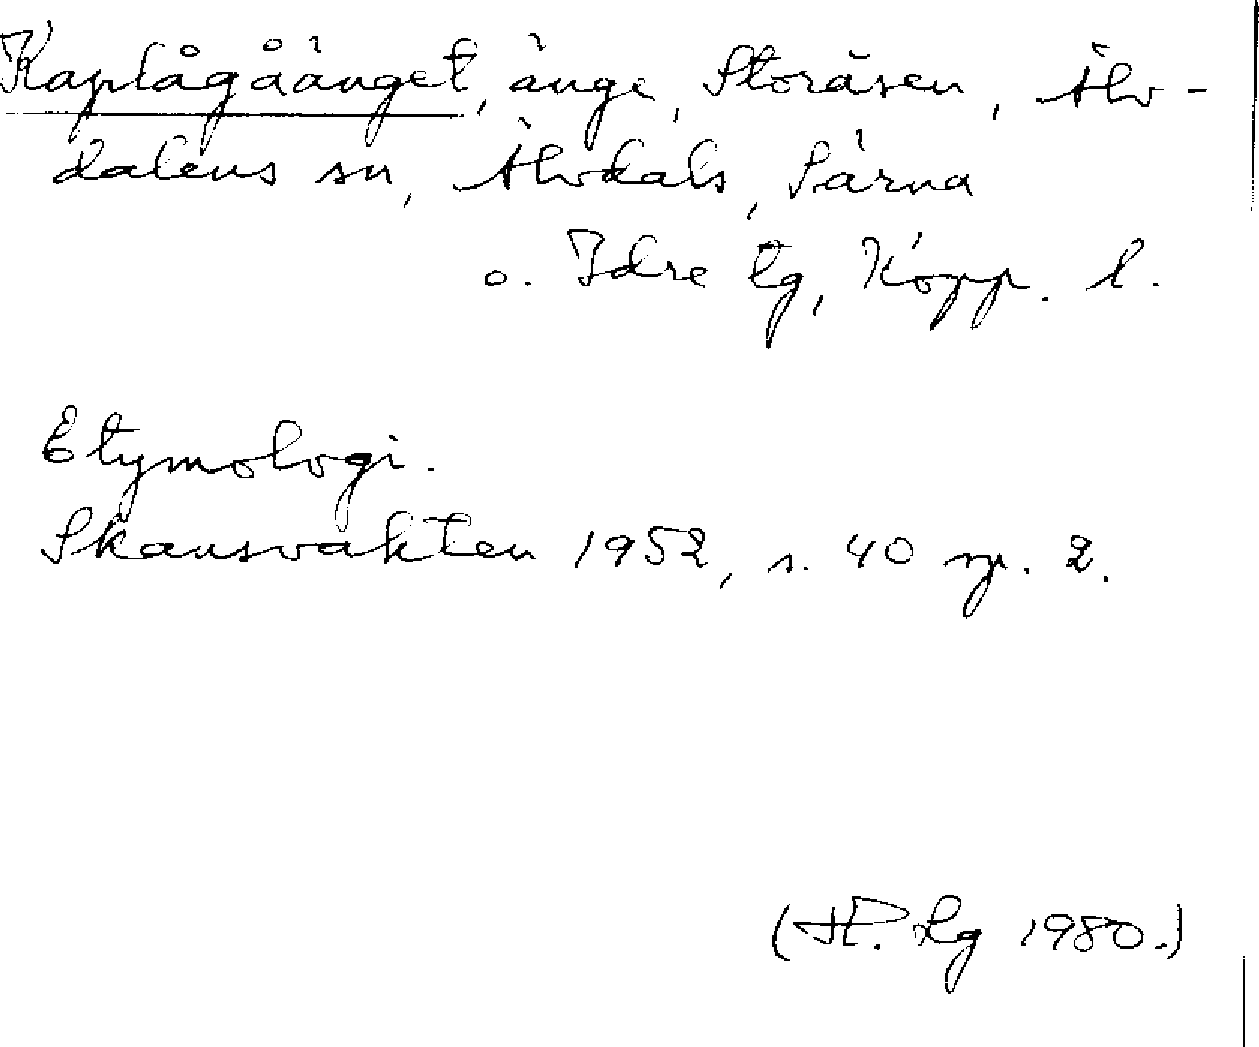 Kaplågåänget, änge, Storåsen, Älv-
dalens sn, Älvdals, Särna
o. Idre tg, Kopp. l.
Etymologi.
Skansvakten 1952, s. 40 sp. 2.
(H.P. Lg 1980.)